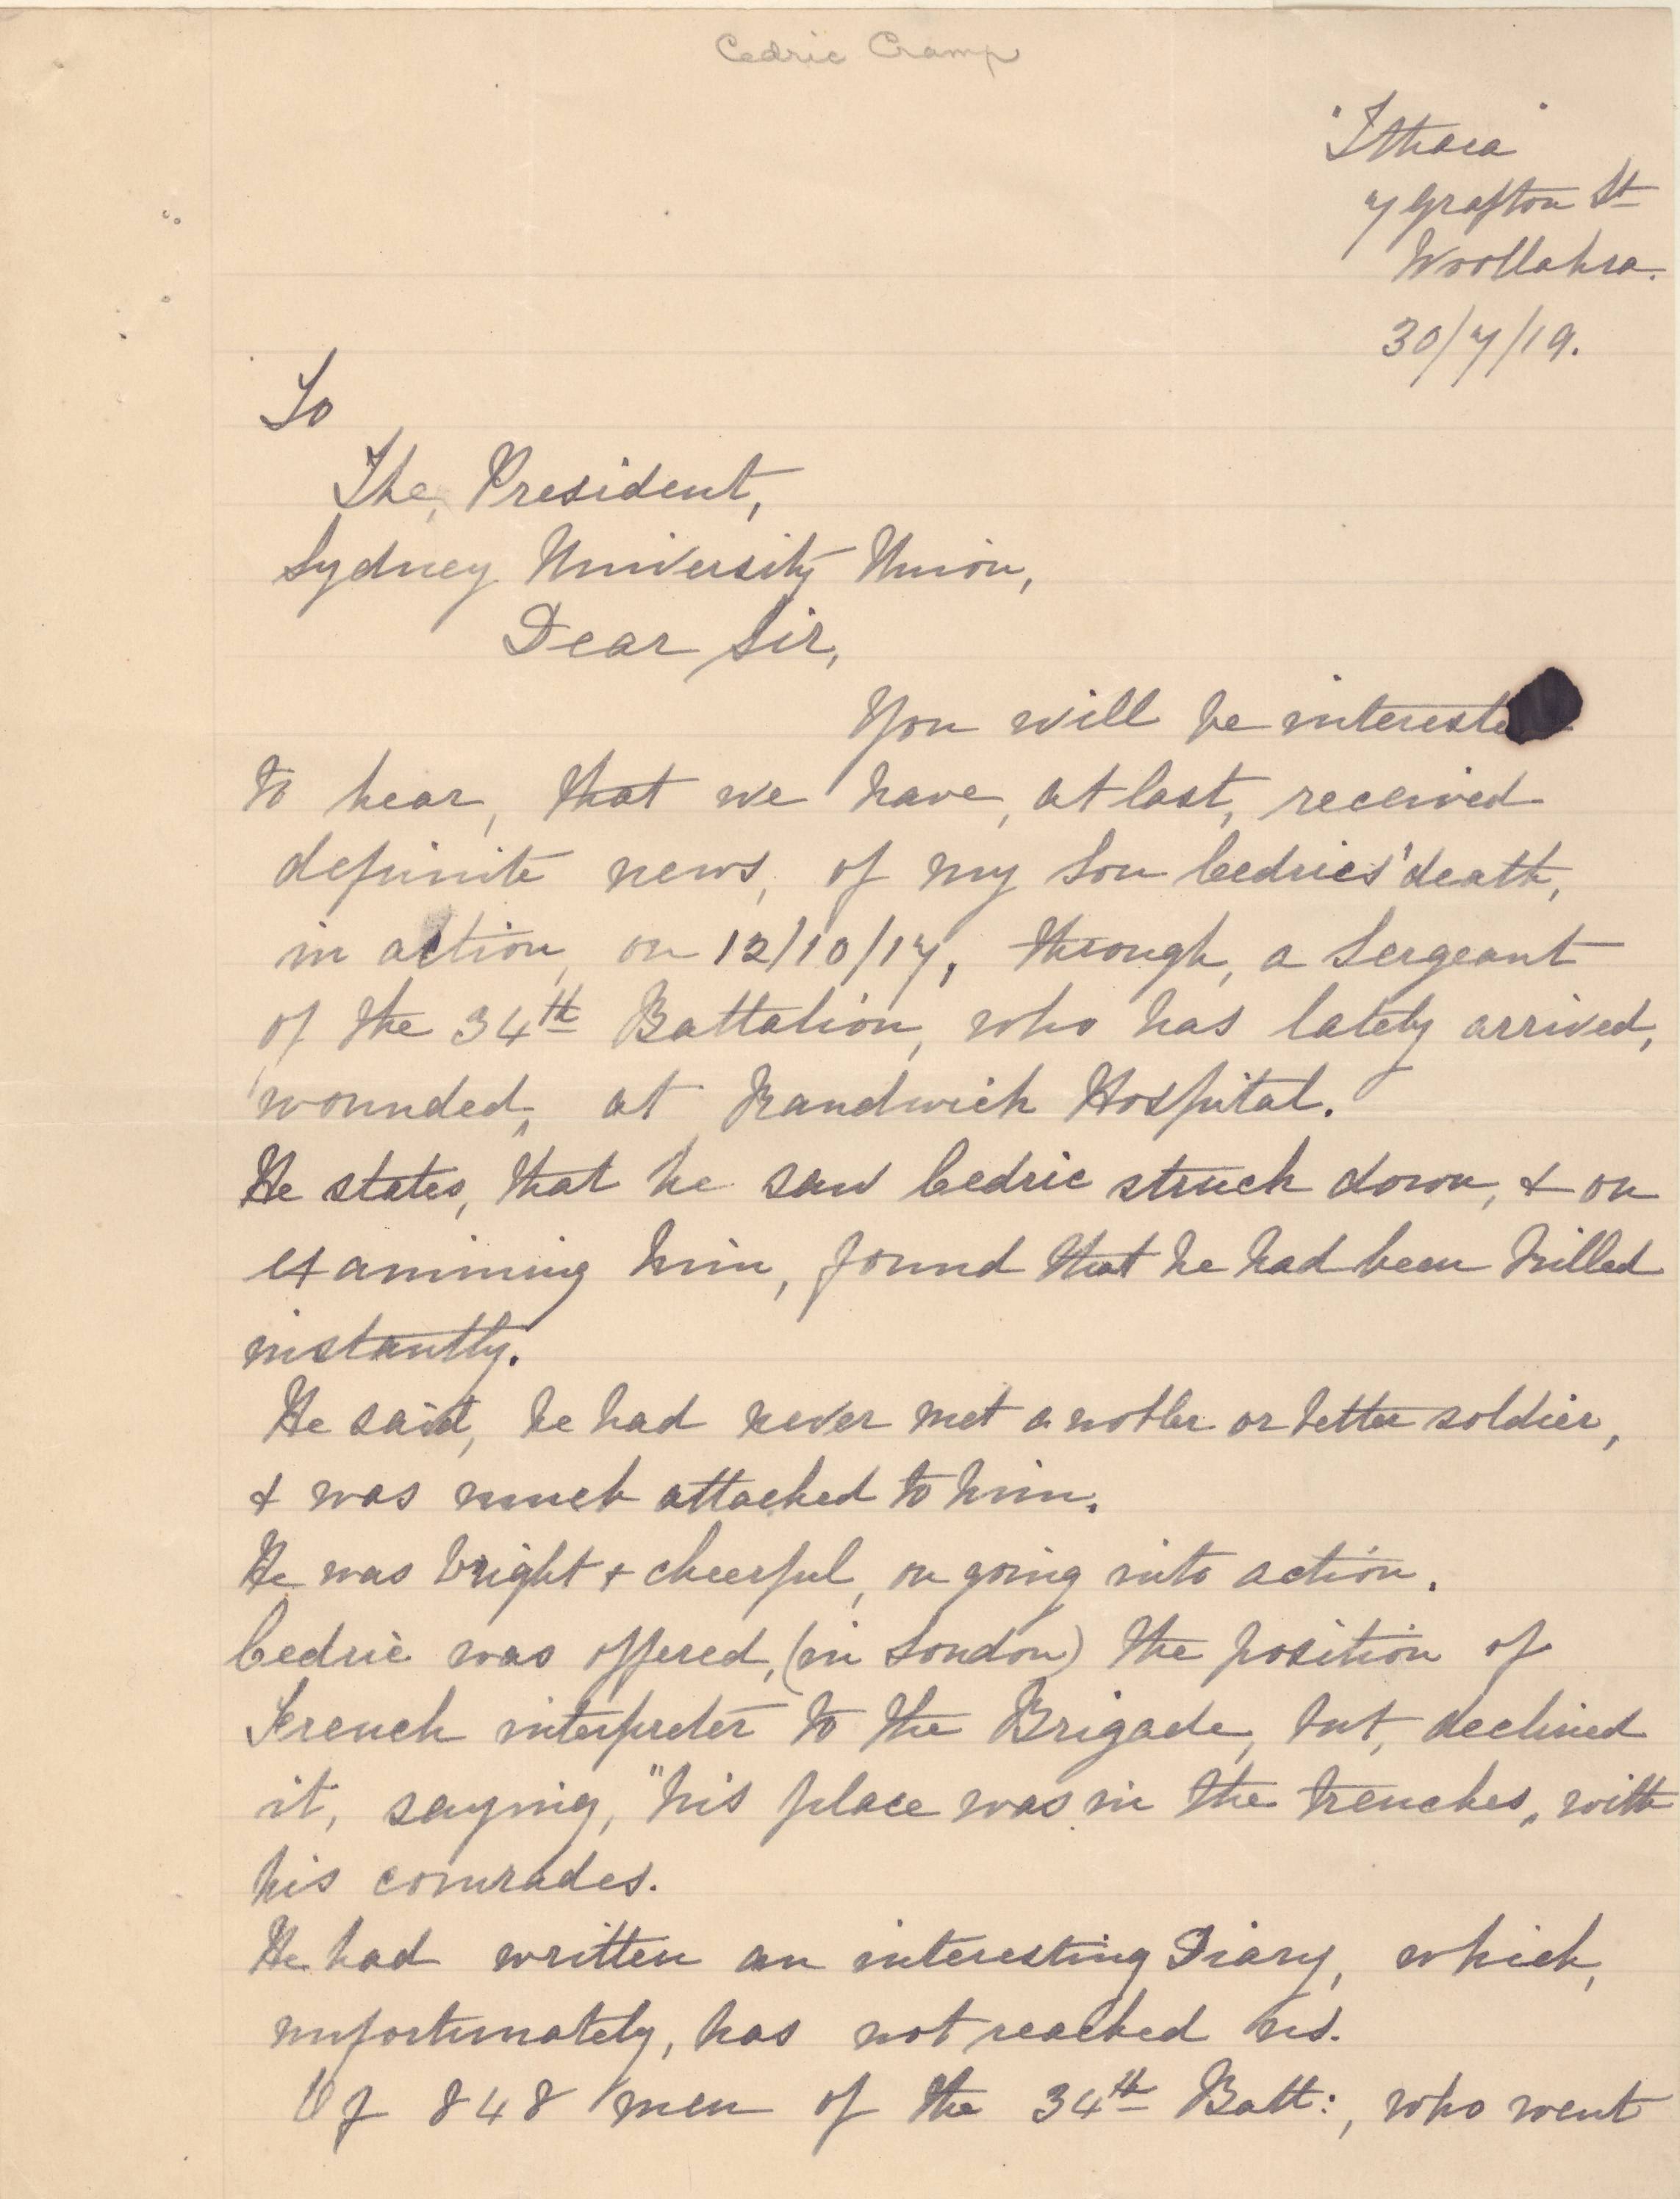 Cedric Cramp
"Ithaca"
7 Grafton St
Woollahra.
30/7/19.
To
The, President,
Sydney University Union,
Dear Sir,
You will be intereste
to hear, that we have, at last, received
definite news, of my Son Cedrics' death,
in action, on 12/10/17, through, a Sergeant
of the 34th Battalion, who has lately arrived,
wounded, at Randwick Hospital.
He states, that he saw Cedric struck down, & on
examining him, found that he had been killed
instantly.
He said, he had never met a nobler or better soldier,
& was much attached to him.
He was bright & cheerful, on going into action.
Cedric was offered, (in London) the position of
French interpreter to the Brigade, but, declined
it, saying, "his place was in the trenches, with
his comrades.
He had written an interesting Diary, which,
unfortunately, has not reached us.
Of 848 men of the 34th Batt:, who went